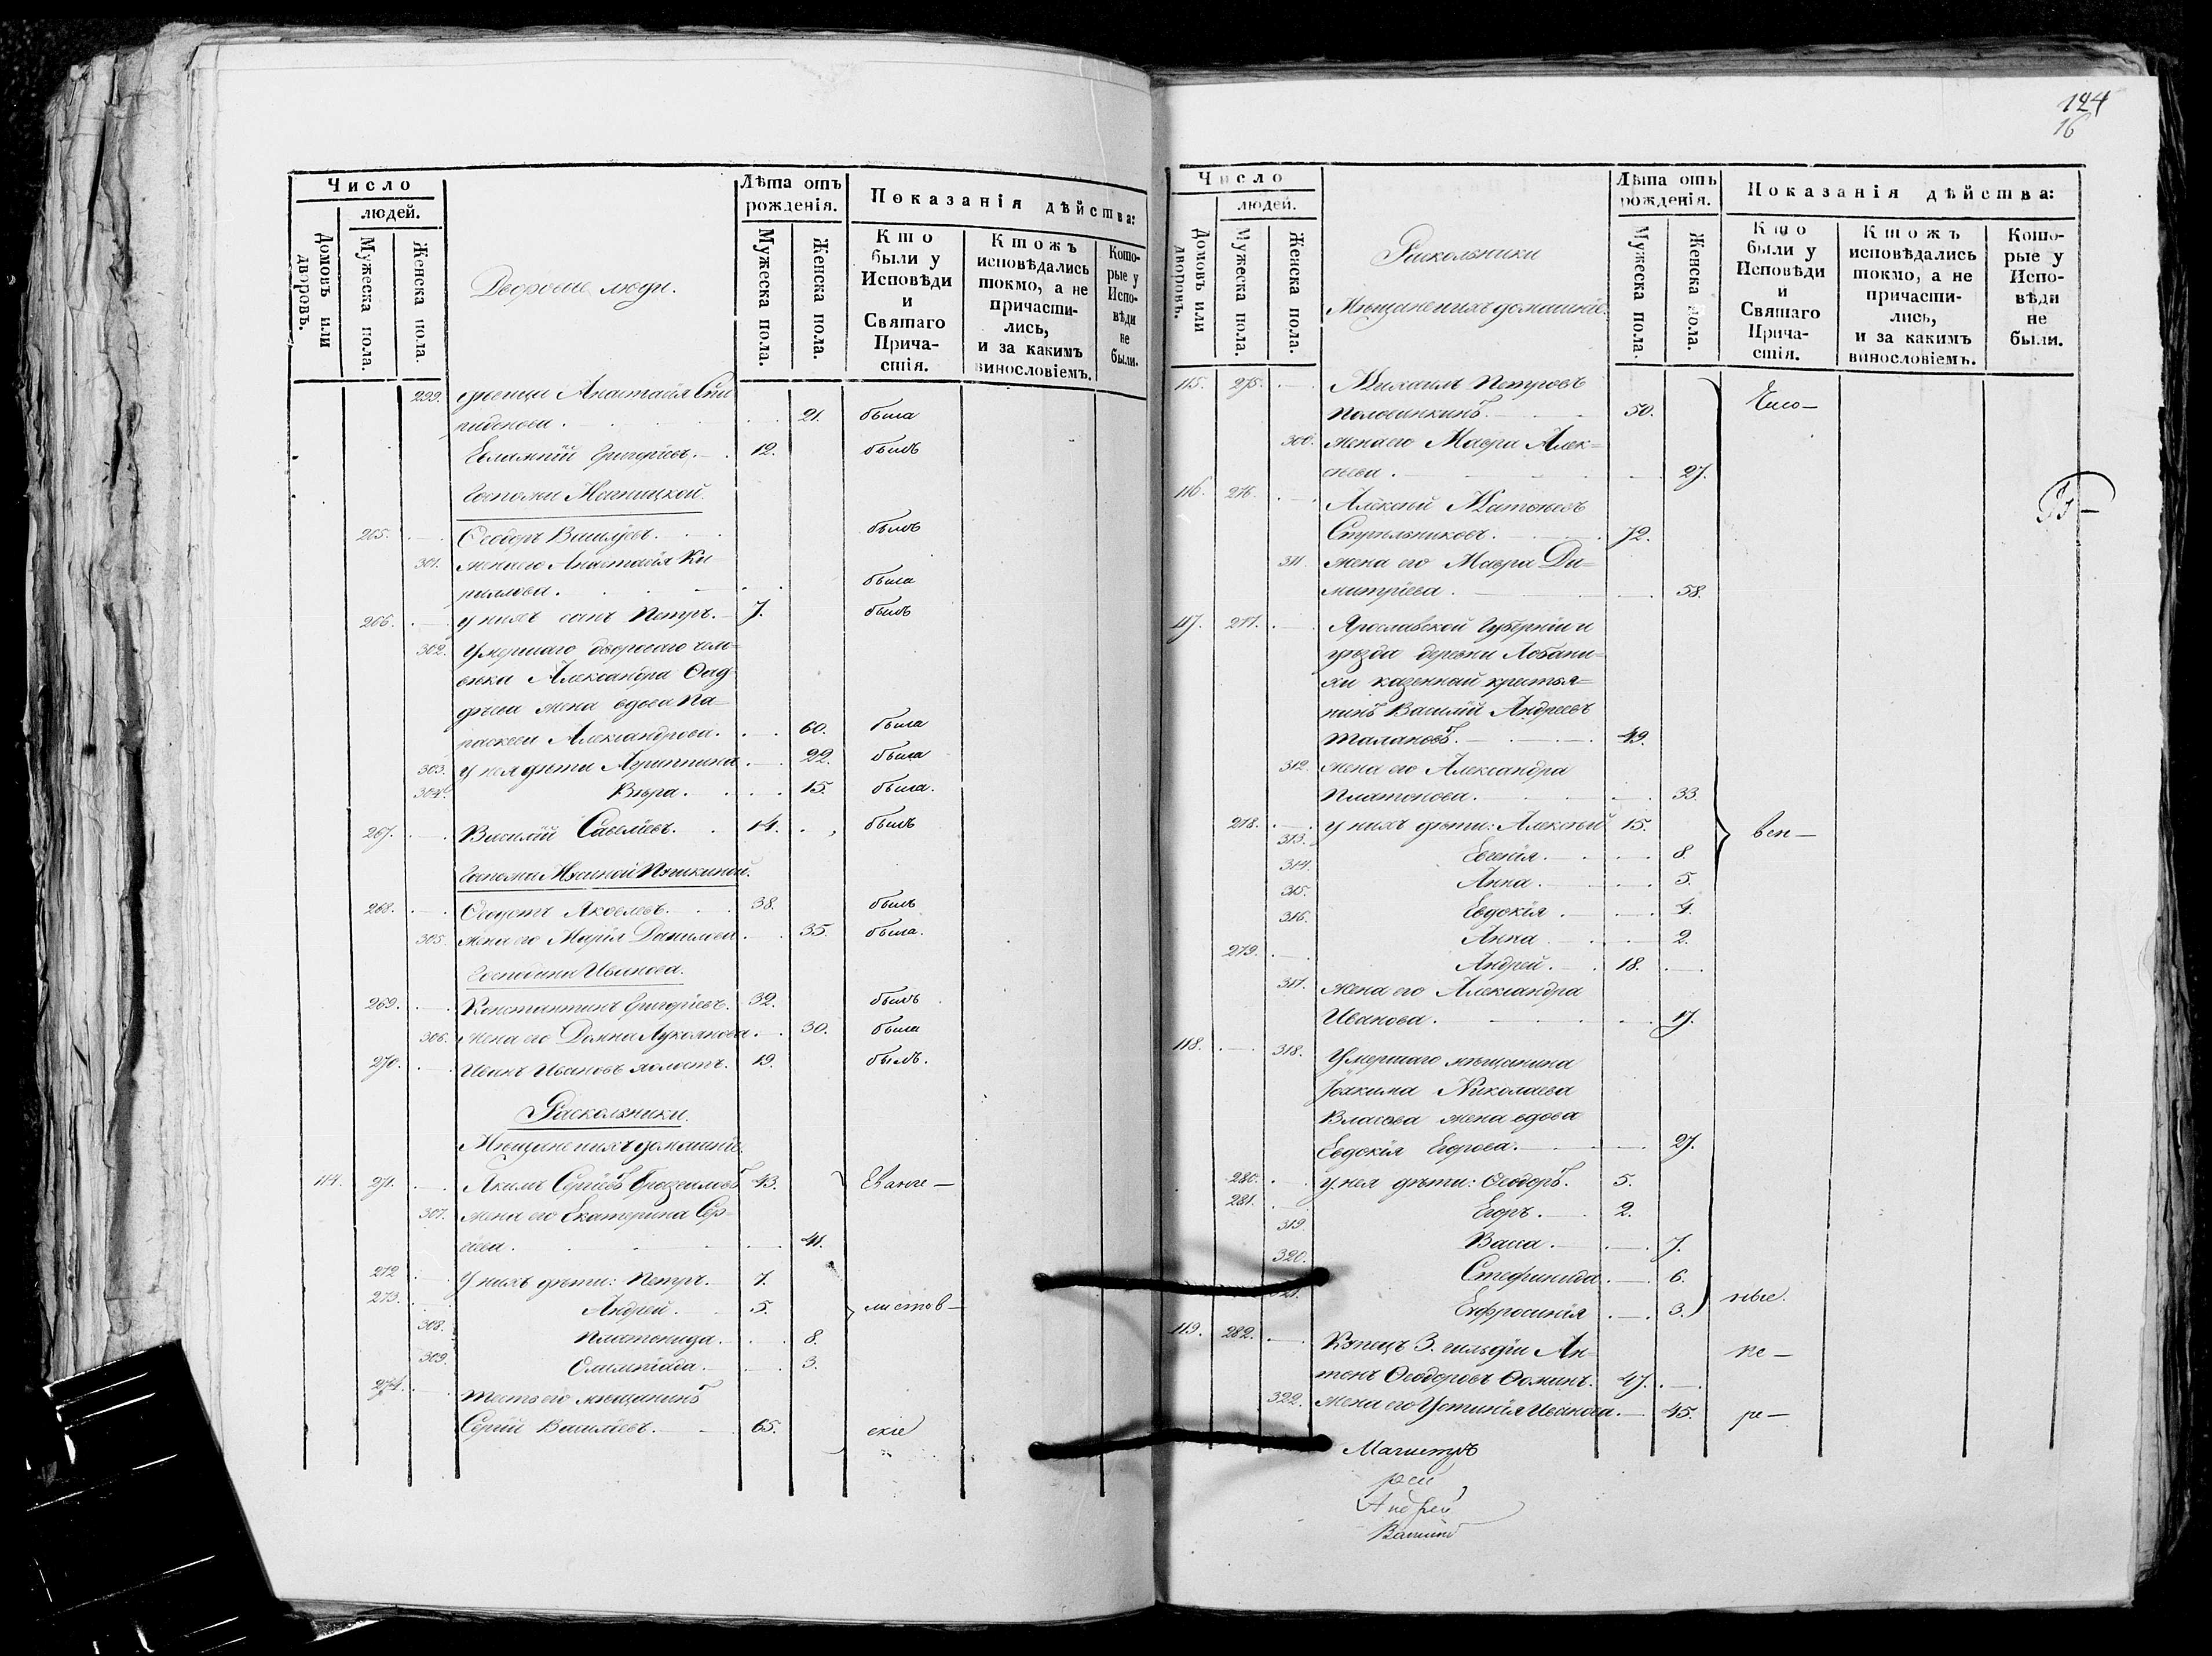 Число
людей.
Домовъ или дворовъ.
Мужеска пола.
Женска пола.
Дворовые люди.
Лѣта отъ
рожденія.
Мужеска пола.
Женска пола.
Показанія дѣйства:
Кто были у Исповѣди и Святаго Причастія.
Ктожъ исповѣдались токмо, а не причастились, и за какимъ винословіемъ.
Которые у Исповѣди не были.
299. Анастасія Спи
ридонова. 21. была
Евлампій Григорьевъ. 12. былъ
Госпожи
265. Ѳеодоръ Васильевъ. былъ
301. жена его Анастасія Ки-
рилова. была
266. у нихъ сынъ Петръ. 7. былъ
302. Умершаго двороваго чело-
вѣка Александра Ѳад
дѣева жена вдова Па-
раскева Александрова. 60. была
303. у нея дѣти Агриппина 22. была
304. Вѣра. 15. была.
267. Василій Савельевъ. 14. былъ
Госпожи Мусиной Пушкиной.
268. Яковлевъ. 38. былъ
305. жена его Марія Данилова 35. была.
Господина Иванова.
269. Константинъ Григорьевъ. 32. былъ
306. жена его Домна Лукоянова. 30. была
270. Иванъ Ивановъ холостъ. 19. былъ.
Раскольники.
Мѣщане и ихъ домашніе.
114. 271. Акимъ Сергѣевъ 43. Еванге—
307. жена его Екатерина Сер-
гѣева. 41.
272 У нихъ дѣти: Петръ. 7.
273. Андрей. 5. листов—
308. Платонида. 8.
309. Олимпіада. 3.
274. тесть его мѣщанинъ
Сергій Васильевъ. 65. скіе
124
16
Число
людей.
Домовъ или дворовъ.
Мужеска пола.
Женска пола.
Раскольники
Мѣщане и ихъ домашніе.
Лѣта отъ
рожденія.
Мужеска пола.
Женска пола.
Показанія дѣйства:
Кто были у Исповѣди и Святаго Причастія.
Ктожъ исповѣдались токмо, а не причастились, и за какимъ винословіемъ.
Которые у Исповѣди не были.
115. 275. Михаилъ Петровъ
Полосинкинъ. 50.
310. жена его Мавра Алек=
сѣева. 27.
116. 276. Алексѣй Матвѣевъ
Стрѣльниковъ. 72.
311. жена его Мавра Ди=
митріева. 58.
117. 277. Ярославской Губерніи и
уѣзда деревни Лобани=
хи казенный крестья=
нинъ Василій Андреевъ
Талановъ. 49.
312. жена его Александра
Платонова. 33.
278. у нихъ дѣти: Алексѣй 15. вен—
313. Евгенія. 8.
314. Анна. 5.
315. Евдокія. 4.
316. Анна 2.
279. Андрей. 18.
317. жена его Александра
Иванова. 17.
118. 318. Умершаго мѣщанина
Іоакима Николаева
Власова жена вдова
Евдокія Егорова. 27.
280. у нея дѣти: Ѳеодоръ. 5.
281. Егоръ. 2.
319. Васса. 7.
320. Стефанида. 6.
321. Евфросинія 3. ные.
119. 282. Купецъ 3. гильдіи Ан=
тонъ Ѳеодоровъ Ѳоминъ. 47. не—
322. жена его Устинія Иванова. 45. ре—
Магистръ
Андрей